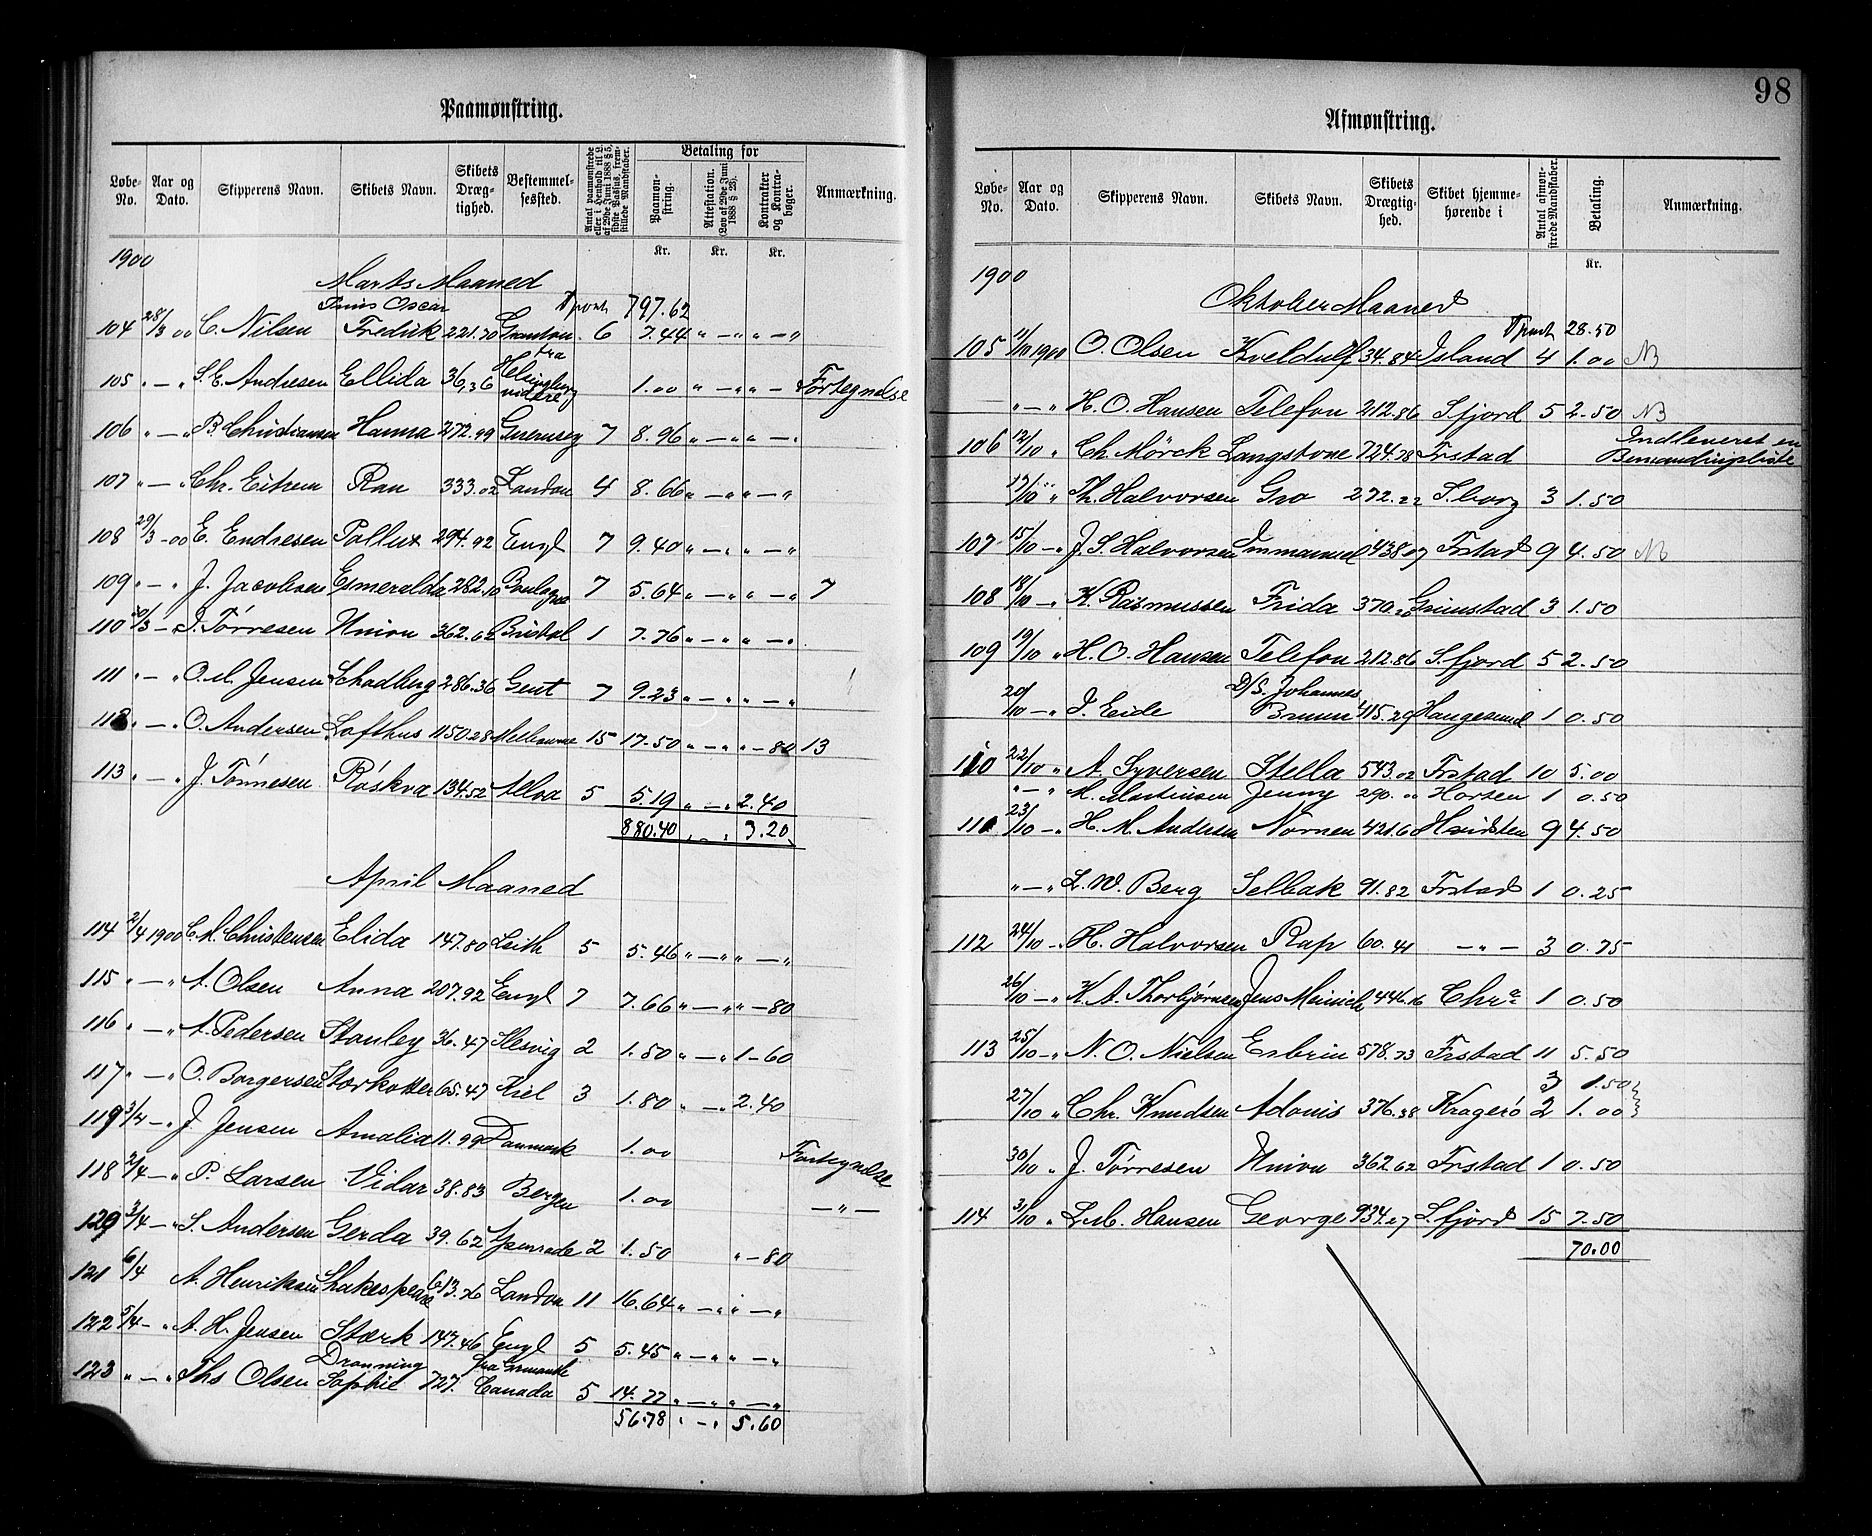 98
Paamønstring.
Løbe-No. Aar og Dato. Skipperens Navn. Skibets Navn. Skibets Dræg-tighed. Bestemmel-sessted. Betaling for Paamøn-string. Attestation. (Lov af 29de Juni 1888 § 23). Kontrakter og Kontra-bøger. Anmærkning.
Kr. Kr. Kr.
1900
Marts Maaned
Tpont 797.62
Prins Oscar
104 28/3 00 C. Nilsen Fredrik 221.70 Granton 6 7.44 " — " " — "
105 " — " S. E. Andresen Ellida 36,36 fra Helsingborg videre 1.00 " — " " — Fortegnelse
106 " — " B. Christiansen Hanna 272.99 Guernsey 7 8.96 " — " " — "
107 " — " Chr. Eitrem Ran 333.02 London 4 8.66 " — " " — "
108 29/3 - 00 E. Endresen Pollux 294.92 Engl 7 9.40 " — " " — "
109 " — " J. Jacobsen Esmeralda 282.10 Boulogne 7 5.64 " — " " — " 7
110 30/3 — J. Tørresen Union 362.62 Bristol 1 7.76 " — " " — "
111 " — " O. M. Jensen Schadberg 286.36 Gent 7 9.23 " — " " — "
112 " — " O. Andersen Lofthus 1150.28 Melbourne 15 17.50 " — " " — 80 13
113 " — " J. Tönnesen Röskva 134.52 Alloa 5 5.19 " — " 2.40
880.40 " — " 3.20
April Maaned
114 2/4 1900 C. M. Christensen Elida 147.80 Leith 5 5.46 " — " " — "
115 " — " A. Olsen Anna 207.92 Engl 7 7.66 " — " " — 80
116 " — " A. Pedersen Stanley 36.47 Slesvig 2 1.50 " — " 1 - 60
117 " — " O. Borgersen Stærkodder 65.47 Kiel 3 1.80 " — " 2.40
119 3/4 — " J. Jensen Amalia 11.99 Danmark 1.00 Fortegnelse
118 2/4 — " P. Larsen Vidar 38.83 Bergen 1.00 — " —
120 3/4 — " S. Andersen Gerda 39.62 Apenrade 2 1.50 " — 80
121 6/4 A. Henriksen Shakespeare 613.26 London 11 16.64 " — " " — "
122 5/4 — " A. H. Jensen Stærk 147.46 Engl 5 5.45 " — " " — "
Dronning
123 " — " Ths Olsen Sophie 727. Canada 5 14.77 " — " " — "
56.78 " — " 5.60
Afmønstring.
Løbe-No. Aar og Dato. Skipperens Navn. Skibets Navn. Skibets Drægtig-hed. Skibet hjemme-hørende i Antal afmøn-strede Mandskaber. Betaling. Anmærkning.
Kr.
1900
Oktober Maaned
Tpont 28.50
105 11/10 1900 O. Olsen Kveldulf 34.84 Island 4 1.00 NB
" — " H. O. Hansen Telefon 212.86 Sfjord 5 2.50 NB
106 12/10 " Ch. Mörck Langstone 724.78 Frstad Indleveret en Bemandingsliste
17/10 " Th. Halvorsen Gro 272.22 S.borg 3 1.50
107 15/10 — " J. S. Halvorsen Immanuel 438.07 Frstad 9 4.50 NB
108 18/10 — " K. Rasmussen Frida 370. Grimstad 3 1.50
109 19/10 " H. O. Hansen Telefon 212.86 S.fjord 5 2.50
20/10 — " J. Eide D/S. Johannes Bruun 415.29 Haugesund 1 0.50
110 22/10 " A. Syversen Stella 543.02 Frstad 10 5.00
" — " M. Martinsen Jenny 290. " Horsen 1 0.50
111 23/10 — " H. M. Andersen Nornen 421.60 9 4.50
" — " L. W. Berg Selbak 91.82 Frstad 1 0.25
112 24/10 — " H. Halvorsen Rap 60.41 — " — 3 0.75
26/10 — " K. A. Thorbjørnsen Jens Meinich 446.16 Chr.a 1 0.50
113 25/10 — " N. O. Nielsen Esbrin 578.73 Frstad 11 5.50
3 1.50 }
27/10 " Chr. Knudsen Adonis 376.38 Kragerö 2 1.00 }
30/10 " J. Tørresen Union 362.62 Frstad 1 0.50
114 31/10 " L. M. Hansen George 934.27 S.fjord 15 7.50
70.00